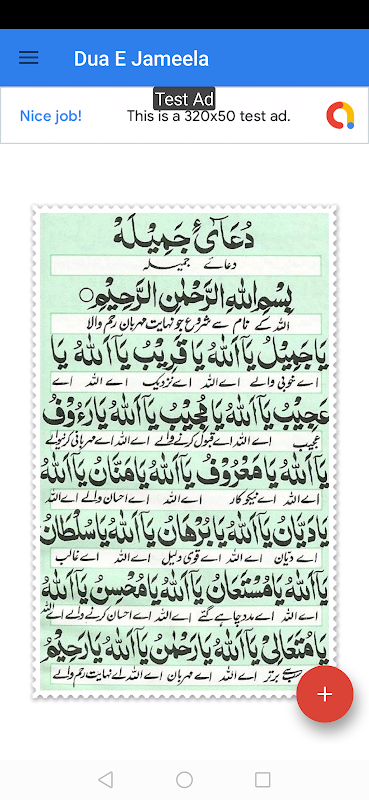 Dua E Jameela
Test Ad
Nice job!
This is a 320x50 test ad.
دُعَآئِ جَمِيْلَهْ
دعائے جمیلہ
بِسْمِ اللهِ الرَّحْمٰنِ الرَّحِيْمِ
اللہ کے نام سے شروع جو نہایت مہربان رحم والا
يَا جَمِيْلُ يَآ اَللهُ يَا قَرِيْبُ يَآ اَللهُ يَا
اے خوبی والے اے اللہ اے نزدیک اے اللہ اے
عَجِيْبُ يَآ اَللهُ يَا مُجِيْبُ يَآ اَللهُ يَا رَءُوْفُ
عجیب اے اللہ اے قبول کرنے والے اے اللہ اے مہربانی کرنیوالے
يَآ اَللهُ يَا مَعْرُوْفُ يَآ اَللهُ يَا مَنَّانُ يَآ اَللهُ
اے اللہ اے نیکوکار اے اللہ اے احسان والے اے اللہ
يَا دَيَّانُ يَآ اَللهُ يَا بُرْهَانُ يَآ اَللهُ يَا سُلْطَانُ
اے دیان اے اللہ اے قوی دلیل اے اللہ اے غالب
يَآ اَللهُ يَا مُسْتَعَانُ يَآ اَللهُ يَا مُحْسِنُ يَآ اَللهُ
اے اللہ اے مدد چاہے گئے اے اللہ اے احسان کرنے والے اے اللہ
يَا مُتَعَالِىْ يَآ اَللهُ يَا رَحْمٰنُ يَآ اَللهُ يَا رَحِيْمُ
برتر اے اللہ اے مہربان اے اللہ اے نہایت رحم والے